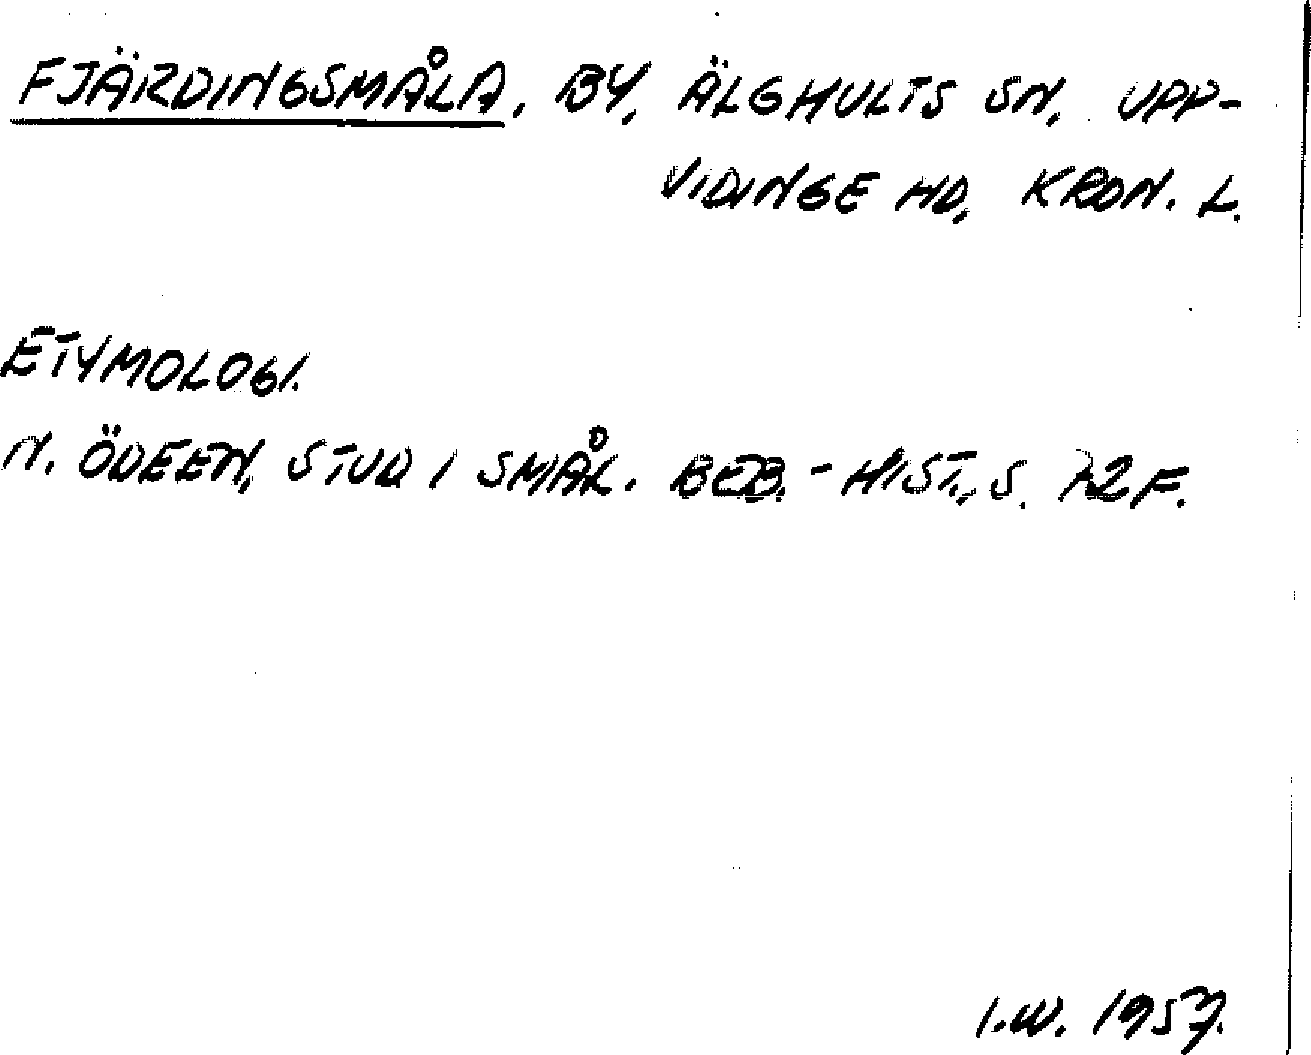 FJÄRDINGSMÅLA, BY, ÄLGHULTS SN, UPP-
VIDINGE HD, KRON. L.
ETYMOLOGI.
N. ÖDEEN, STUD I SMÅL. BEB.-HIST., S. 72 F.
I.W. 1957.